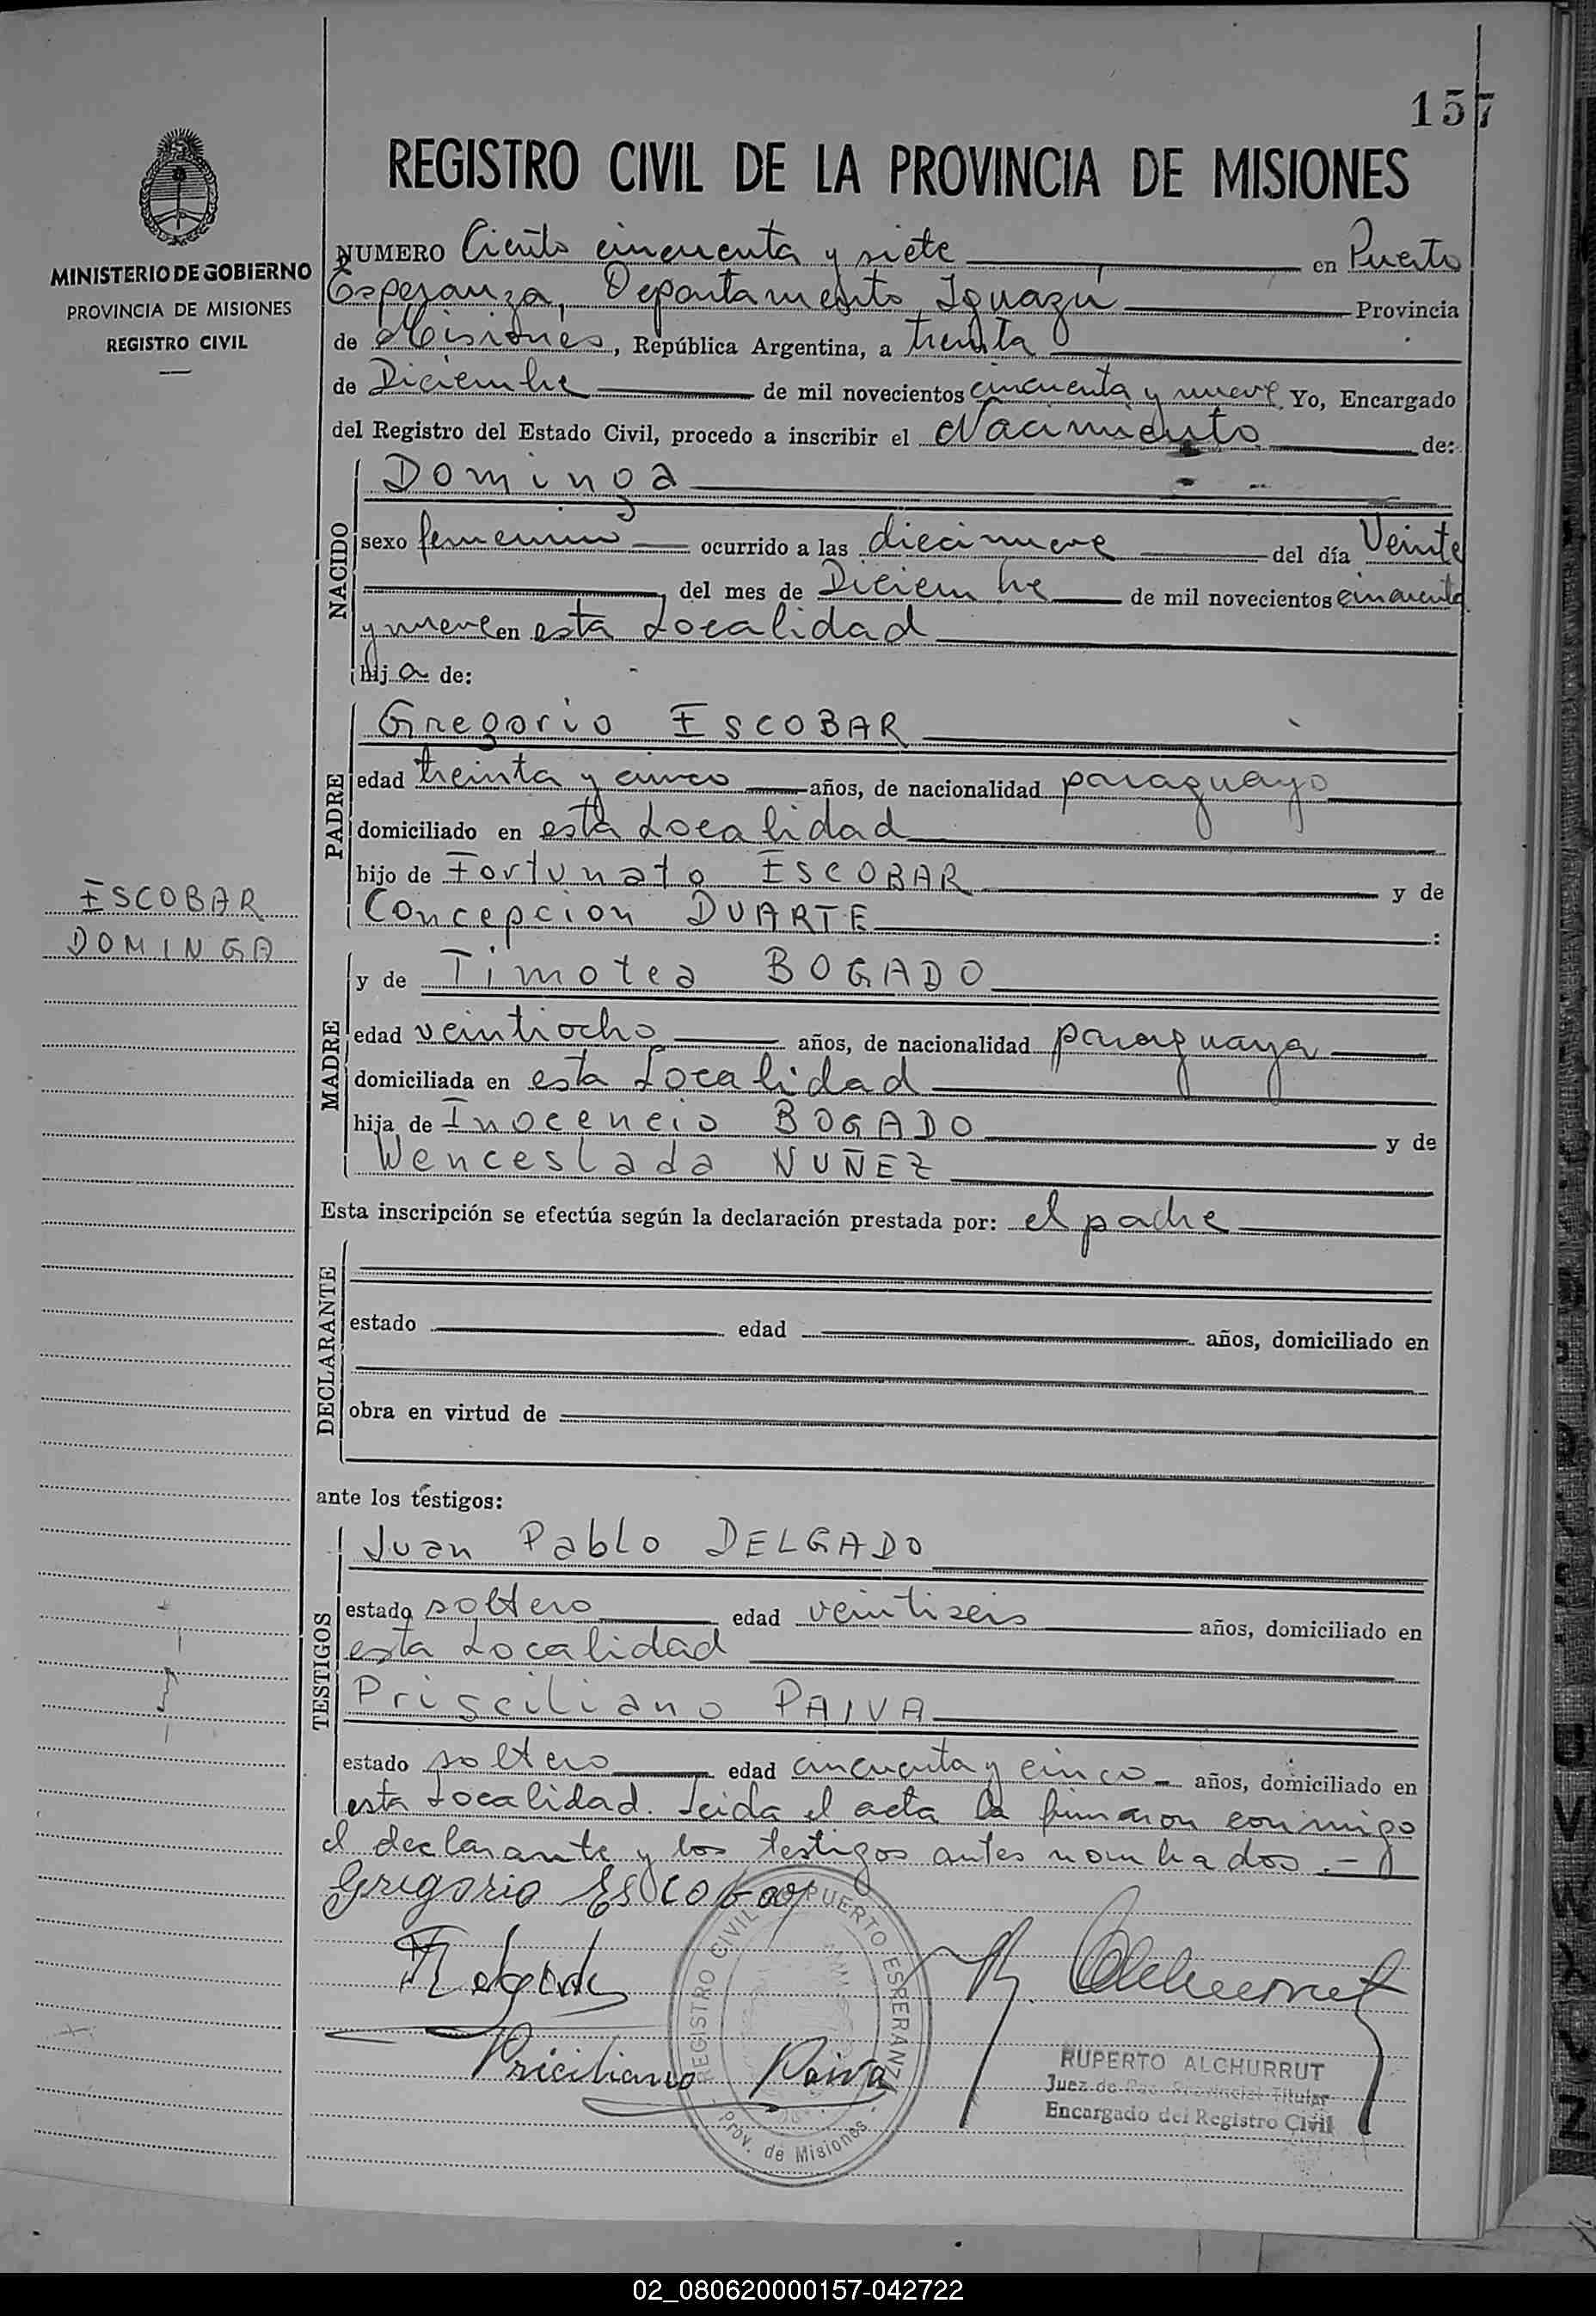 157
REGISTRO CIVIL DE LA PROVINCIA DE MISIONES
MINISTERIO DE GOBIERNO
PROVINCIA DE MISIONES
REGISTRO CIVIL
ESCOBAR
DOMINGA
NUMERO Ciento cincuenta y siete en Puerto
Esperanza, Departamento Iguazú Provincia
de Misiones, República Argentina, a treinta
de Diciembre de mil novecientos cincuenta y nueve. Yo, Encargado
del Registro del Estado Civil, procedo a inscribir el Nacimiento de:
NACIDO
Dominga
sexo femenino ocurrido a las diecinueve del día Veinte
del mes de Diciembre de mil novecientos cincuenta
y nueve en esta Localidad
hija de:
PADRE
Gregorio ESCOBAR
edad treinta y cinco años, de nacionalidad paraguayo
domiciliado en esta Localidad
hijo de Fortunato ESCOBAR y de
Concepcion DUARTE :
MADRE
y de Timotea BOGADO
edad veintiocho años, de nacionalidad paraguaya
domiciliada en esta Localidad
hija de Inocencio BOGADO y de
Wenceslada NUÑEZ
Esta inscripción se efectúa según la declaración prestada por: el padre
DECLARANTE
estado edad años, domiciliado en
obra en virtud de
ante los testigos:
TESTIGOS
Juan Pablo DELGADO
estado soltero edad veintiseis años, domiciliado en
esta Localidad
Prisciliano PAIVA
estado soltero edad cincuenta y cinco años, domiciliado en
esta Localidad. Leida el acta la firmaron conmigo
el declarante y los testigos antes nombrados.-
Gregorio Escobar
REGISTRO CIVIL PUERTO ESPERANZA
Prov. de Misiones
Priciliano Paiva
RUPERTO ALCHURRUT
Juez de Paz Provincial Titular
Encargado del Registro Civil
02_080620000157-042722